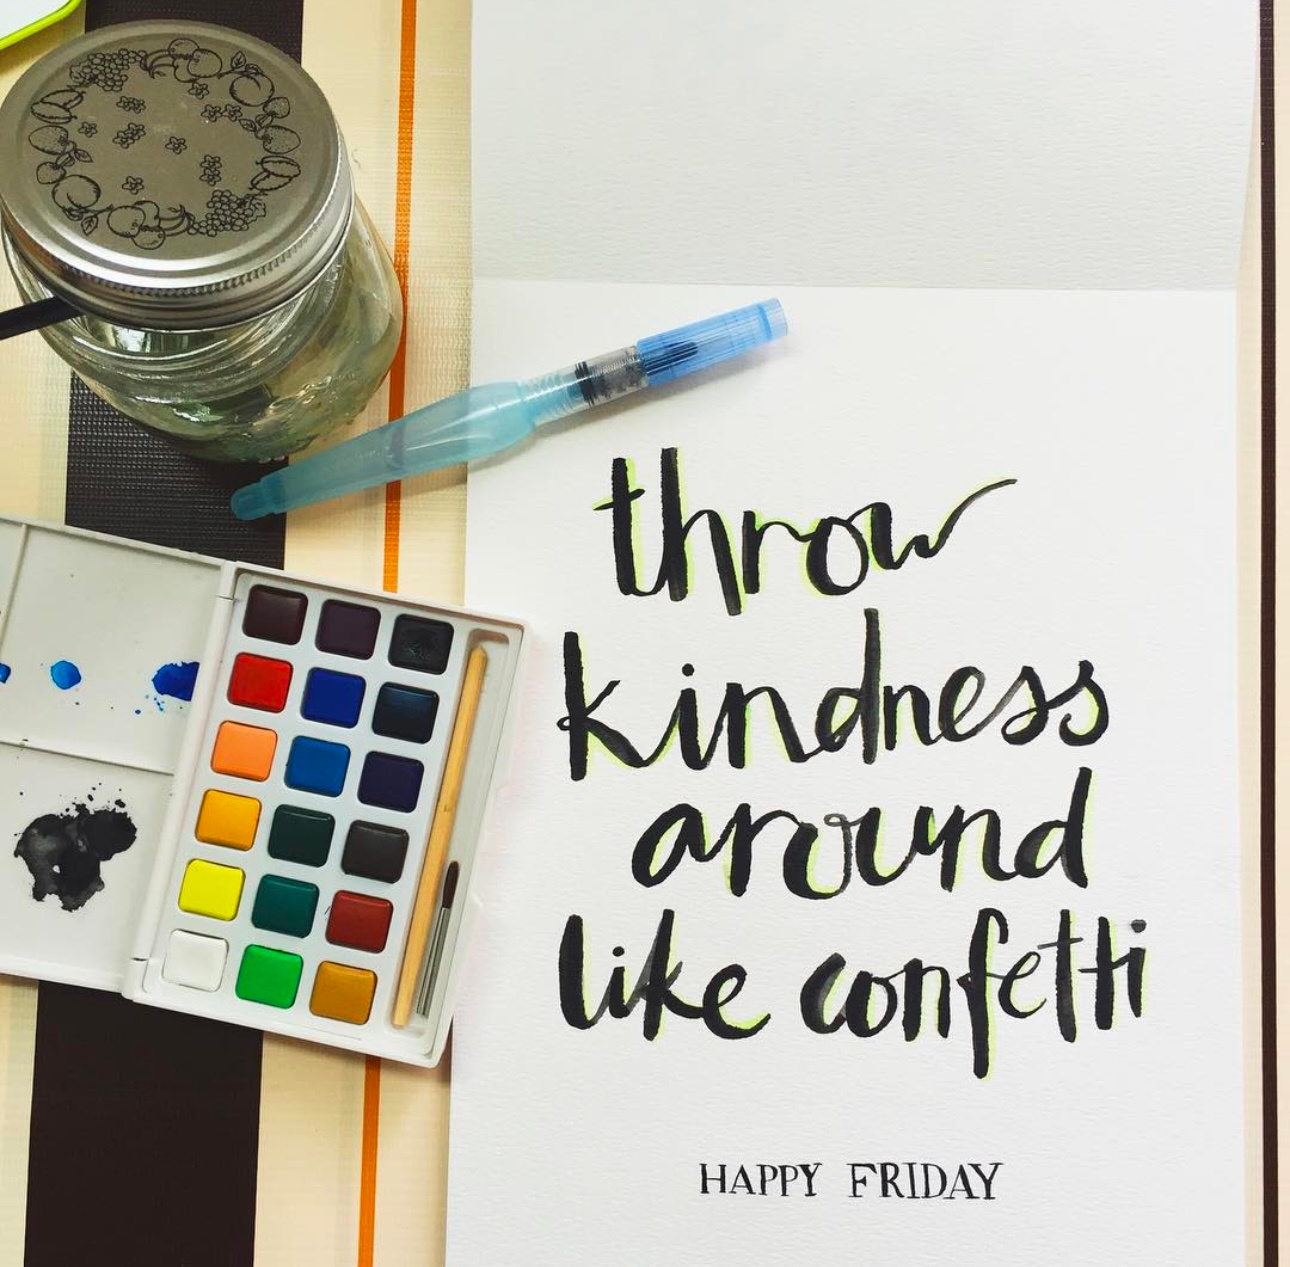 throw
kindness
around
like confetti
HAPPY FRIDAY